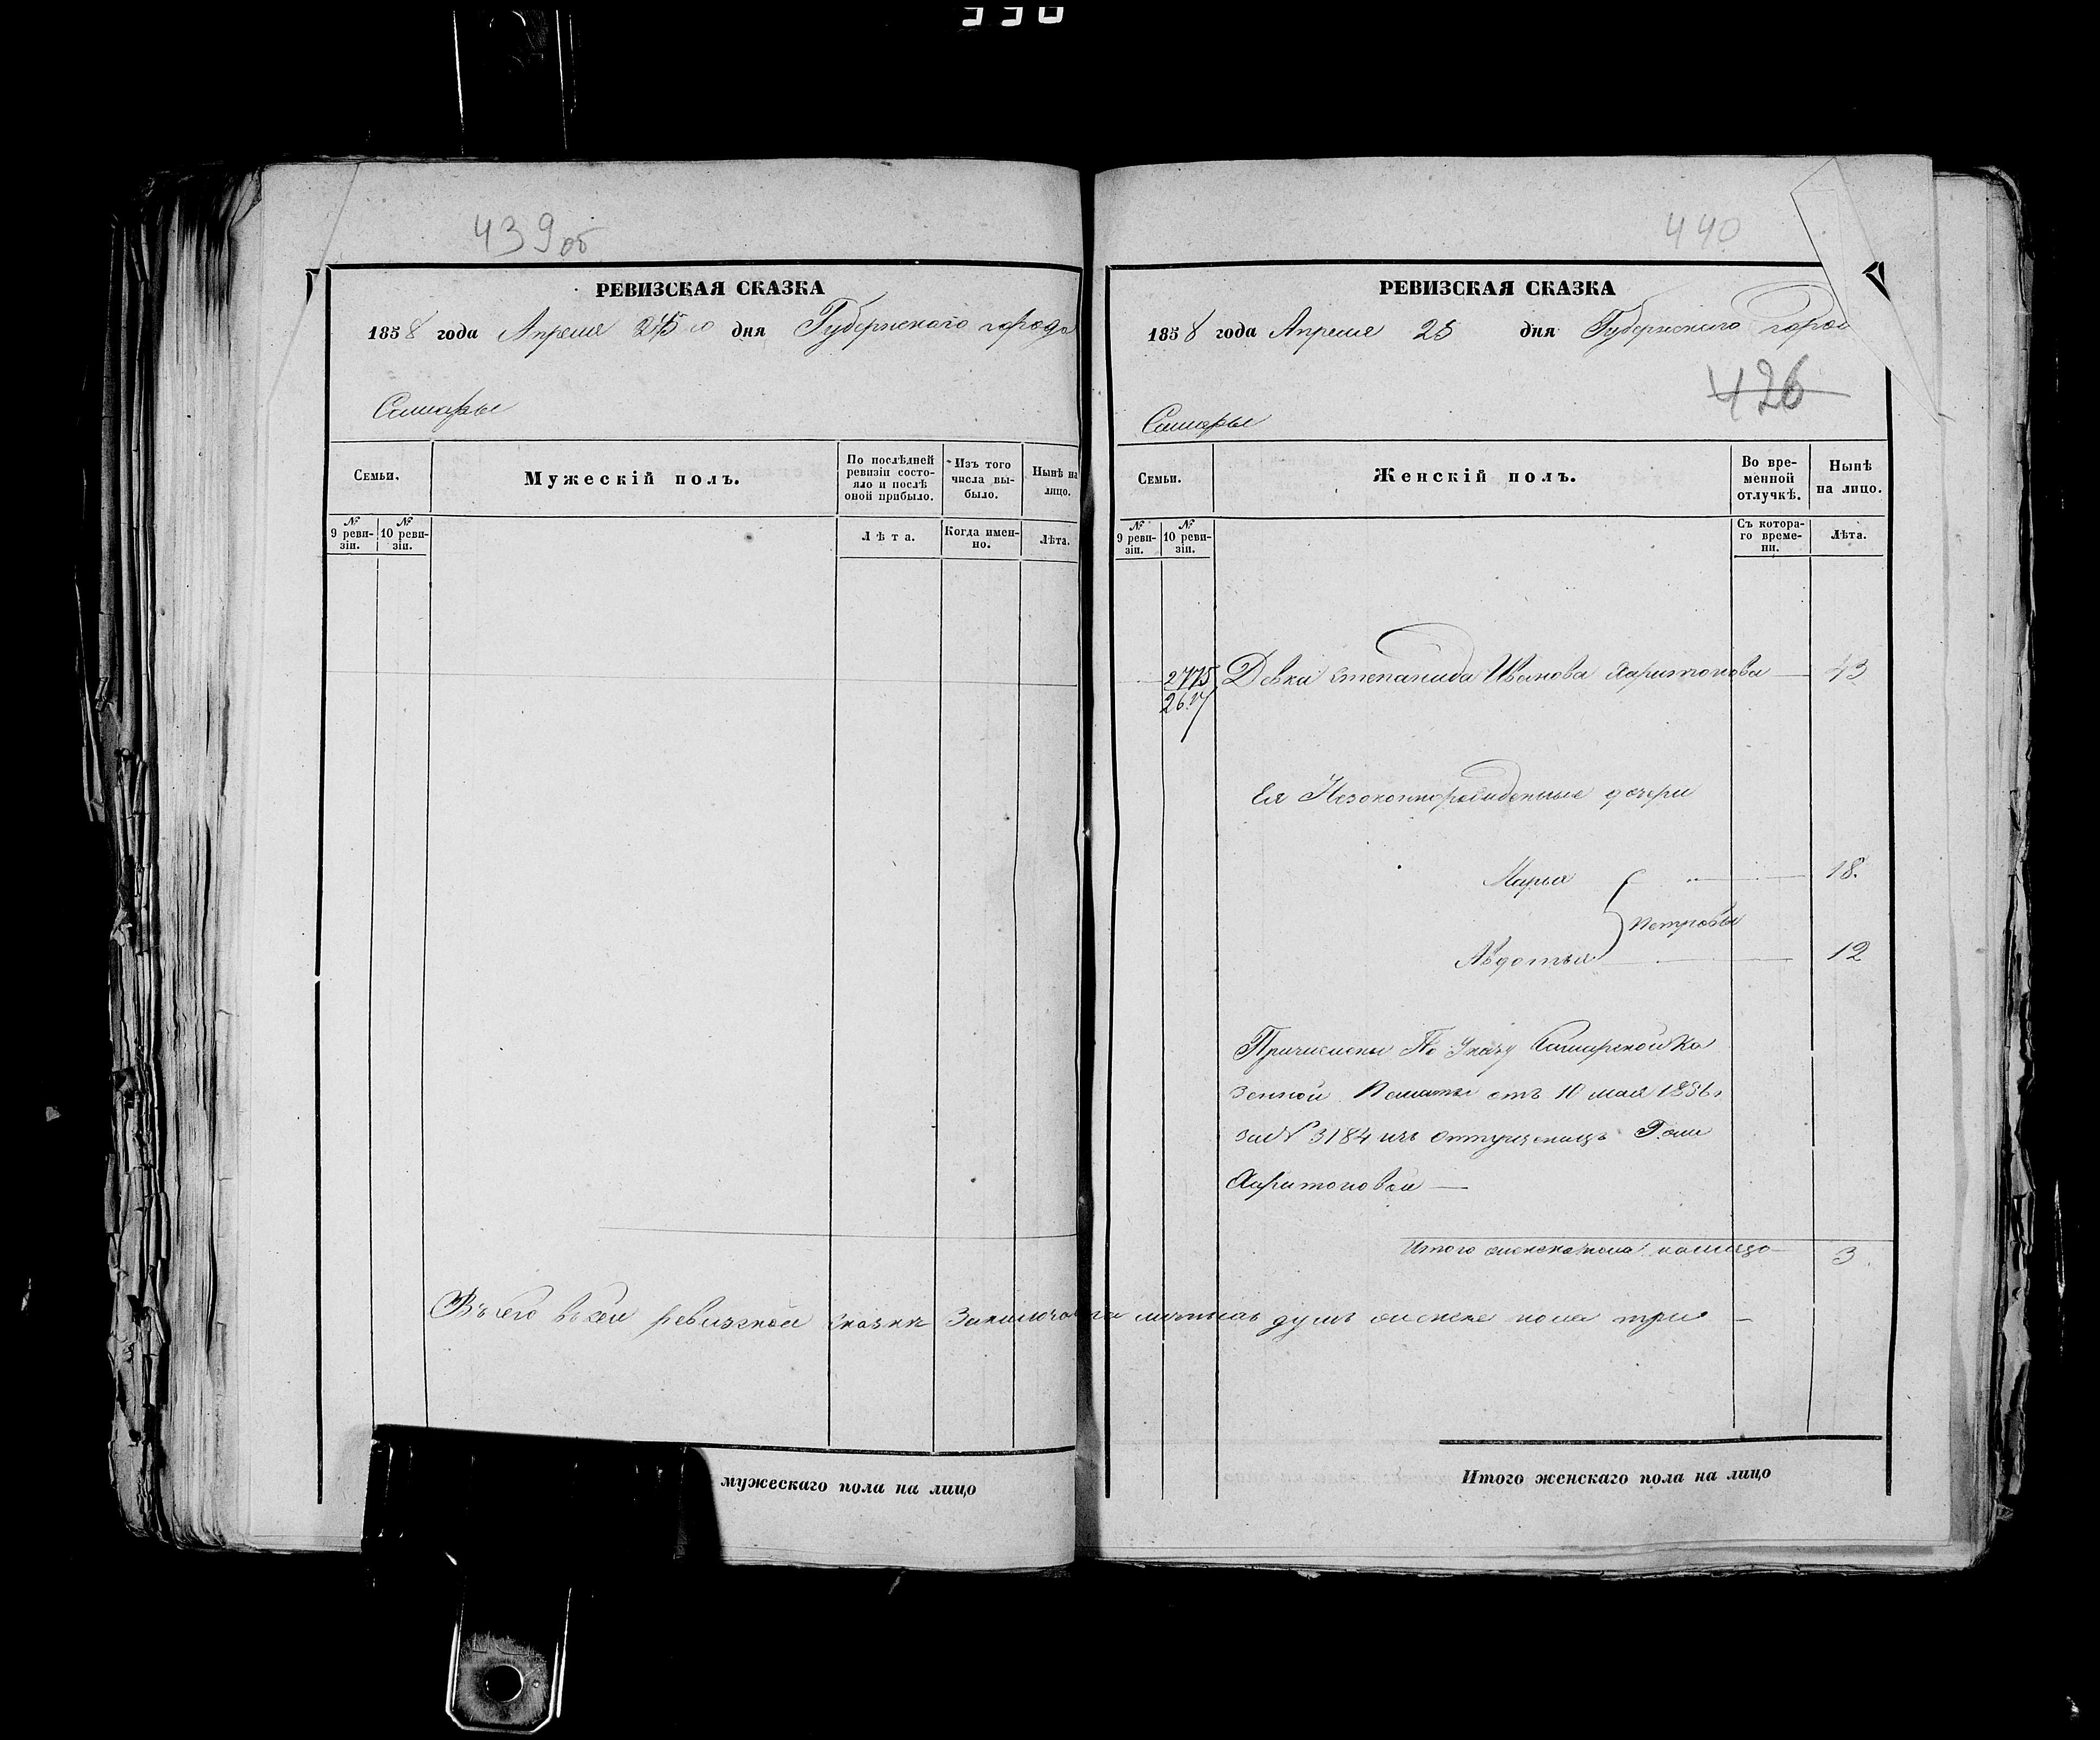 439об
РЕВИЗСКАЯ СКАЗКА
1858 года Апреля 25го дня Губернскаго города
Самары
Семьи.
Мужескій полъ.
По послѣдней ревизіи состояло и послѣ оной прибыло.
Изъ того числа выбыло.
Нынѣ на лицо.
№ 9 ревизіи.
№ 10 ревизіи.
Лѣта.
Когда именно.
Лѣта.
мужескаго пола на лицо
440
РЕВИЗСКАЯ СКАЗКА
1858 года Апреля 25 дня Губернскаго горо
426
Самары
Семьи.
Женскій полъ.
Во временной отлучкѣ.
Нынѣ на лицо.
№ 9 ревизіи.
№ 10 ревизіи.
Съ котораго времени.
Лѣта.
2775 Девка Степанида Иванова Харитонова 43
Ея Незаконнорожденные дочери
Марья 18.
Петровы
Авдотья 12
Причислены По Указу Самарской Ка
зенной Палаты отъ 10 мая 1856г
за № 3184 изъ отпущенницъ Г.жи
Харитоновой
Итого женска пола налицо 3
Всего въ сей ревизской сказкѣ Заключается душъ женска пола три
Итого женскаго пола на лицо